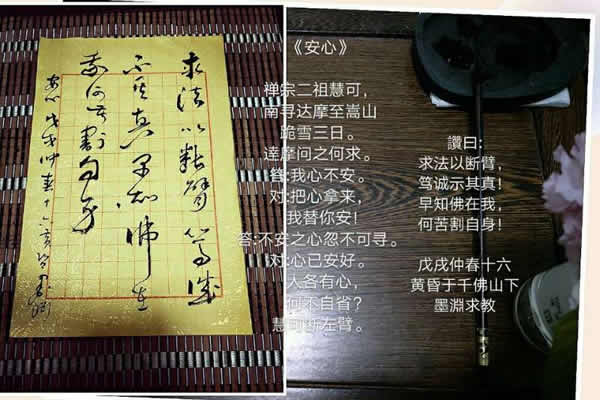 求法以断臂笃诚
示其真早知佛在
我何苦割自身
安心戊戌仲春十六
《安心》
禅宗二祖慧可，
南寻达摩至嵩山
跪雪三日。
達摩问之何求。
答:我心不安。
对:把心拿来，
我替你安！
答:不安之心忽不可寻。
对:心已安好。
人各有心，
何不自省？
慧可断左臂。
讚曰:
求法以断臂，
笃诚示其真！
早知佛在我，
何苦割自身！
戊戌仲春十六
黄昏于千佛山下
墨淵求教